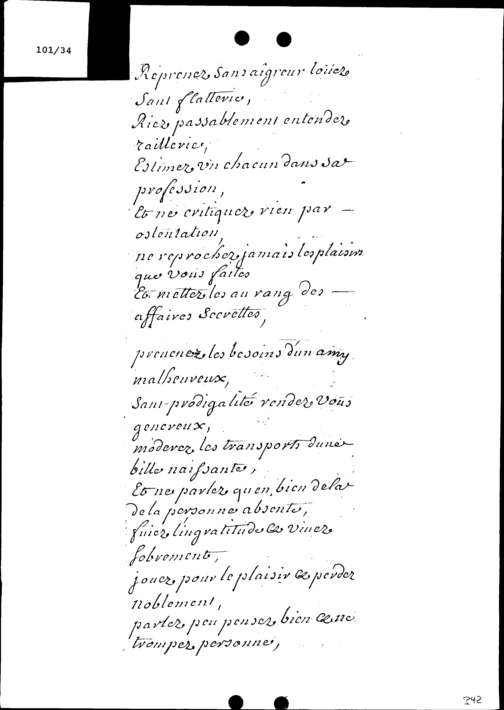 101/34
Reprenez Sans aigreur loüez
Sans flatterie,
Riez passablement entendez
raillerie,
Estimez un chacun dans sa
profession,
Et ne critiquez rien par —
ostentation,
ne reprochez jamais les plaisirs
que Vous faites
Et mettez les au rang des —
affaires Secrettes,
preuenez les besoins d'un amy
malheureux,
Sans prodigalité rendez Vous
genereux,
moderez les transports dune
bille naissante,
Et ne parlez qu en bien dela
de la personne absente,
fuiez l'ingratitude & viuez
sobrement,
jouez pour le plaisir & perdez
noblement,
parlez peu pensez bien & ne
trompez personne,
342